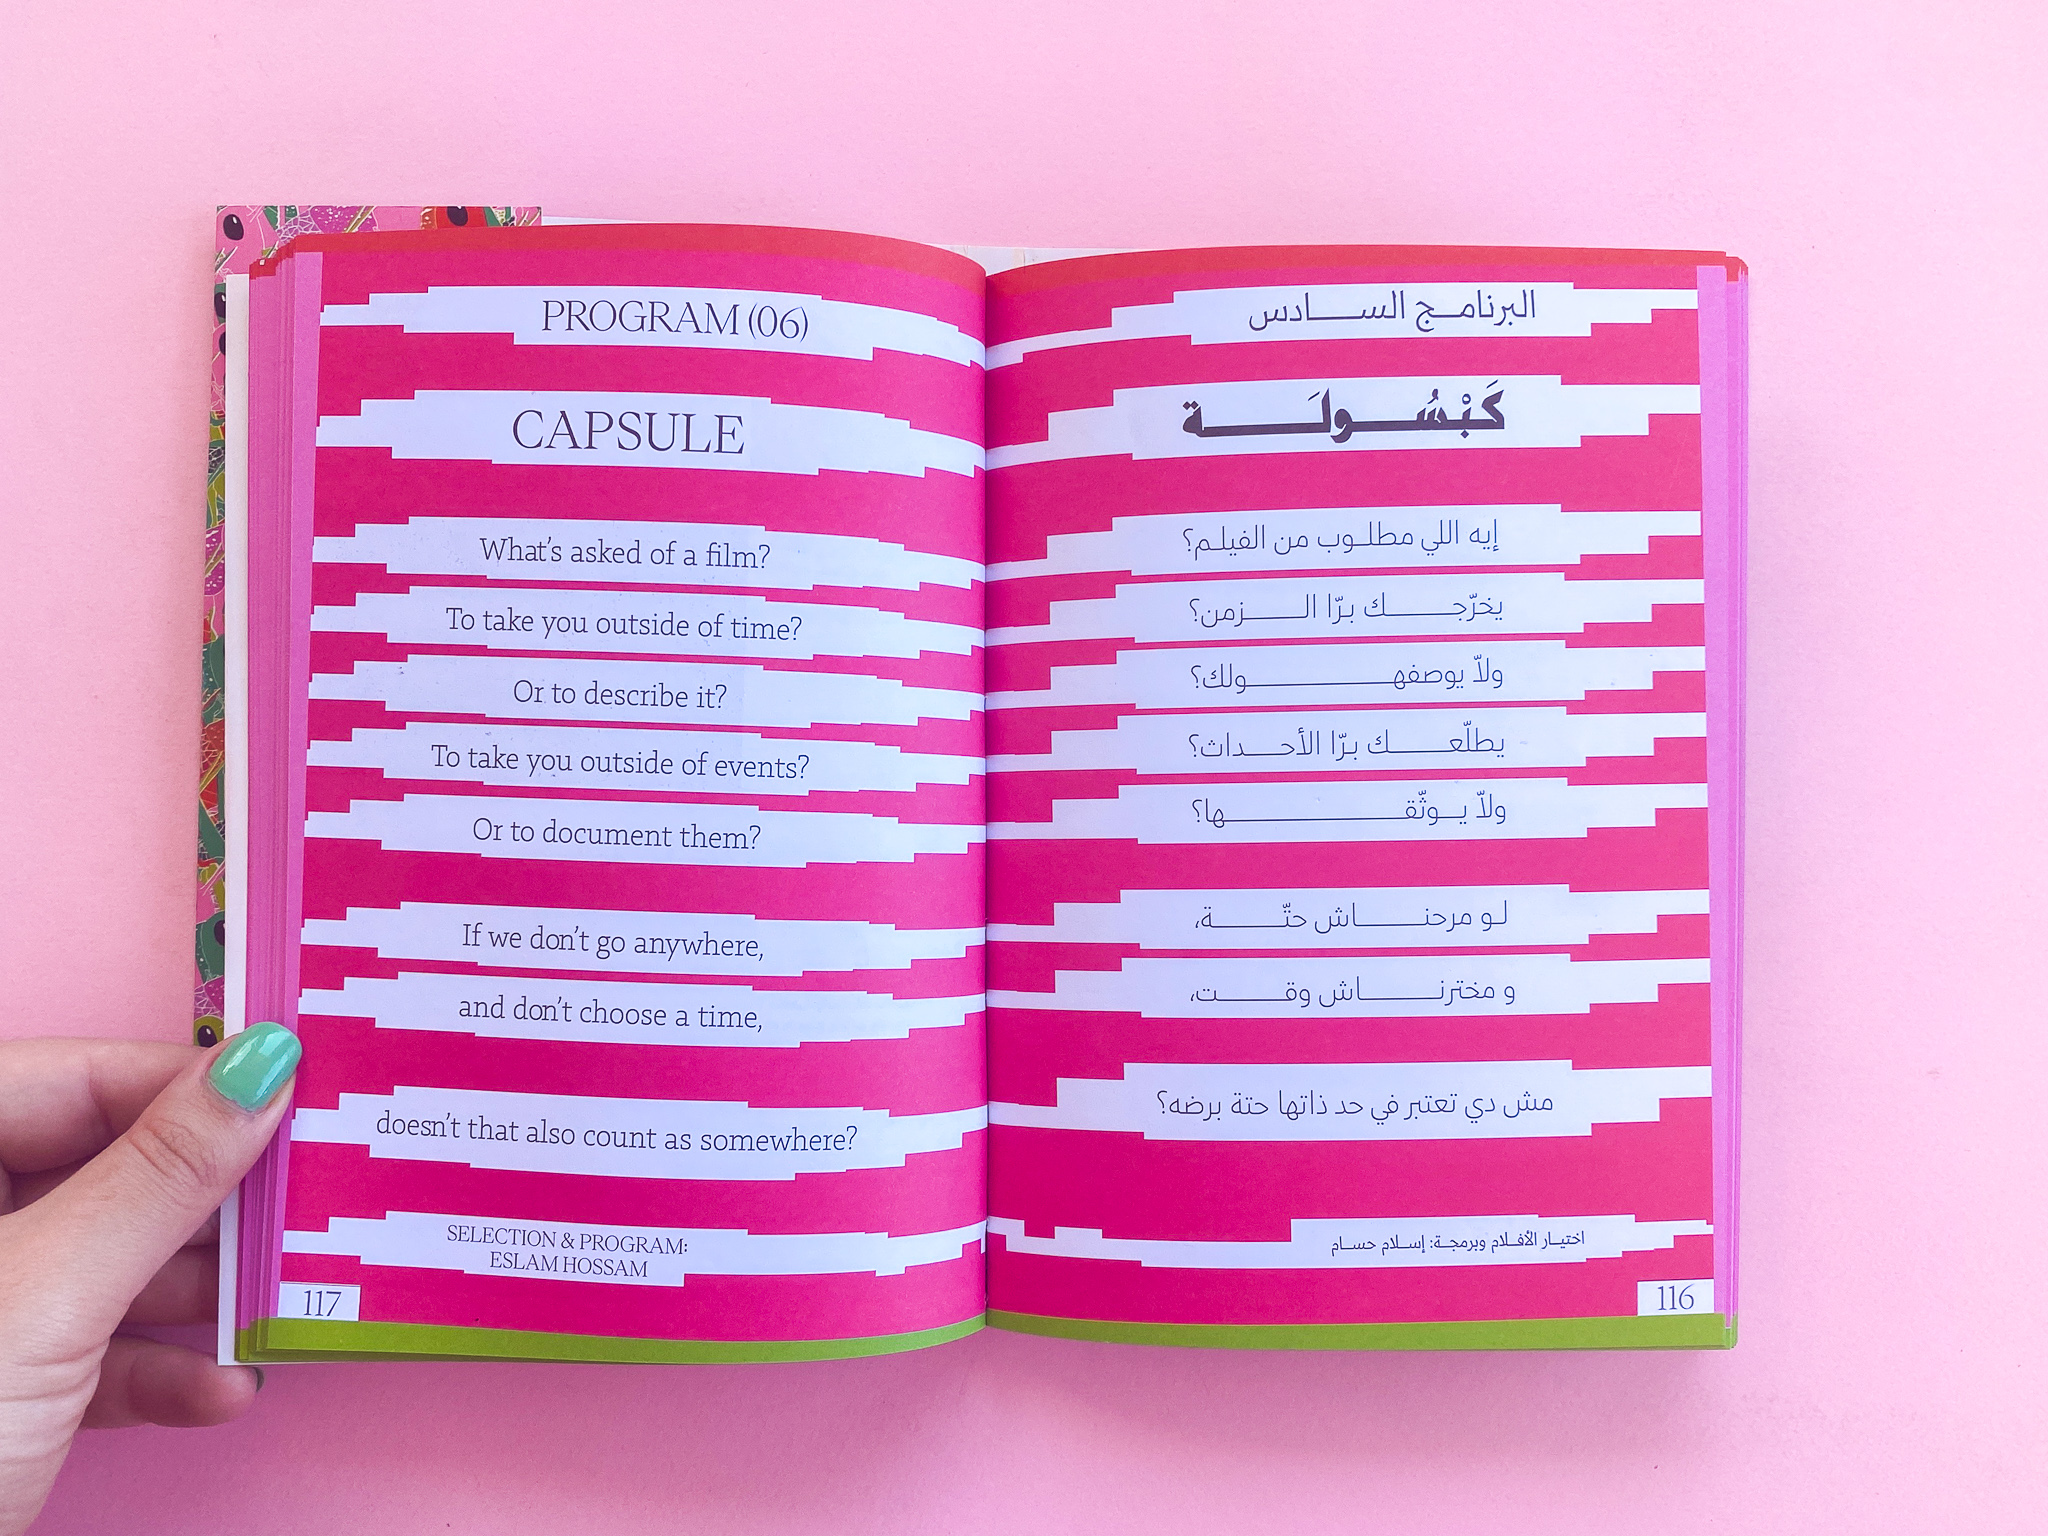 PROGRAM (06)
CAPSULE
What's asked of a film?
To take you outside of time?
Or to describe it?
To take you outside of events?
Or to document them?
If we don't go anywhere,
and don't choose a time,
doesn't that also count as somewhere?
SELECTION & PROGRAM:
ESLAM HOSSAM
117
البرنامـج الســـادس
كَبْسُـــولَـــة
إيه اللي مطلـوب من الفيلـم؟
يخرّجـــــك برّا الـــــزمن؟
ولاّ يوصفهـــــــــولك؟
يطلّعـــــك برّا الأحـــداث؟
ولاّ يـوثّقـــــــــــها؟
لـو مرحنـــــاش حتّـــــة،
و مخترنـــــاش وقـــــت،
مش دي تعتبر في حد ذاتها حتة برضه؟
اختيـار الأفـلام وبرمجـة: إسـلام حسـام
116